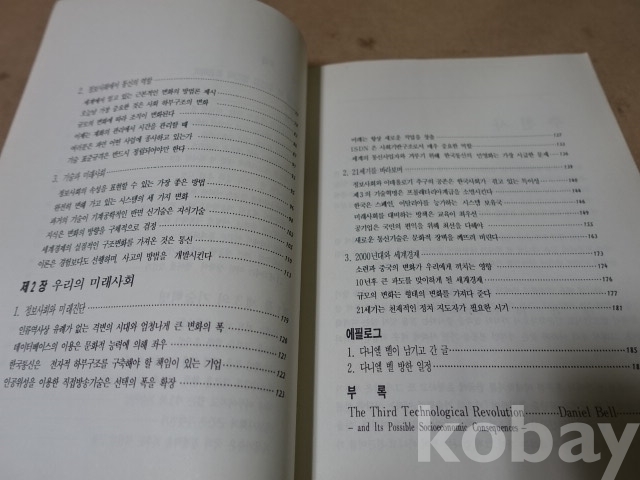 2. 정보사회에서 통신의 역할
세계에서 쉽고 있는 근본적인 변화의 방법을 제시
오늘의 가장 중요한 것은 사회 하부구조의 변화
규모의 변화에 따라 조직이 변화된다
이제는 재화의 관리에서 시간을 관리할 때
여러분은 과연 어떤 사업에 종사하고 있는가
기술 표준규격은 반드시 정립되어야만 한다
3. 기술과 미래사회
정보사회의 속성을 표현할 수 있는 가장 좋은 방법
완전히 변해 가고 있는 시스템의 세 가지 변화
과거의 기술이 기계공학적인 반면 신기술은 지식기술
지식은 변화의 방향을 구체적으로 결정
세계경제의 실질적인 구조변화를 가져온 것은 통신
이론은 경험보다도 선행하며 사고의 방법을 개발시킨다 113
제2장 우리의 미래사회
1. 정보사회와 미래진단 119
인류역사상 유례가 없는 격변의 시대와 엄청나게 큰 변화의 폭
데이터베이스의 이용은 문화적 능력에 의해 좌우 120
한국통신은 전자적 하부구조를 구축해야 할 책임이 있는 기업 122
인공위성을 이용한 직접방송기술은 선택의 폭을 확장 123
이제는 항상 새로운 직업을 창출 127
ISDN 은 사회기반구조로서 매우 중요한 역할
세계의 통신사업자와 겨루기 위해 한국통신의 민영화는 가장 시급한 문제
2. 21세기를 바라보며
정보사회와 이데올로기 추구의 공존은 한국사회가 갖고 있는 특이성
제3의 기술혁명은 프롤레타리아계급을 소멸시킨다
한국은 스페인, 이탈리아를 능가하는 시스템 보유국
미래사회를 대비하는 방책은 교육이 최우선
공기업은 국민의 편익을 위해 최선을 다해야
새로운 통신기술은 문화적 장벽을 깨뜨려 버린다
3. 2000년대와 세계경제 173
소련과 중국의 변화가 우리에게 끼치는 영향
10년후 큰 파도를 맞이하게 될 세계경제
규모의 변화는 형태의 변화를 가져다 준다 177
21세기는 천재적인 정치 지도자가 필요한 시기
에필로그
1. 다니엘 벨이 남기고 간 글 185
2. 다니엘 벨 방한 일정
부 록
The Third Technological Revolution Daniel Bell
– and Its Possible Socioeconomic Consequences –
kobay